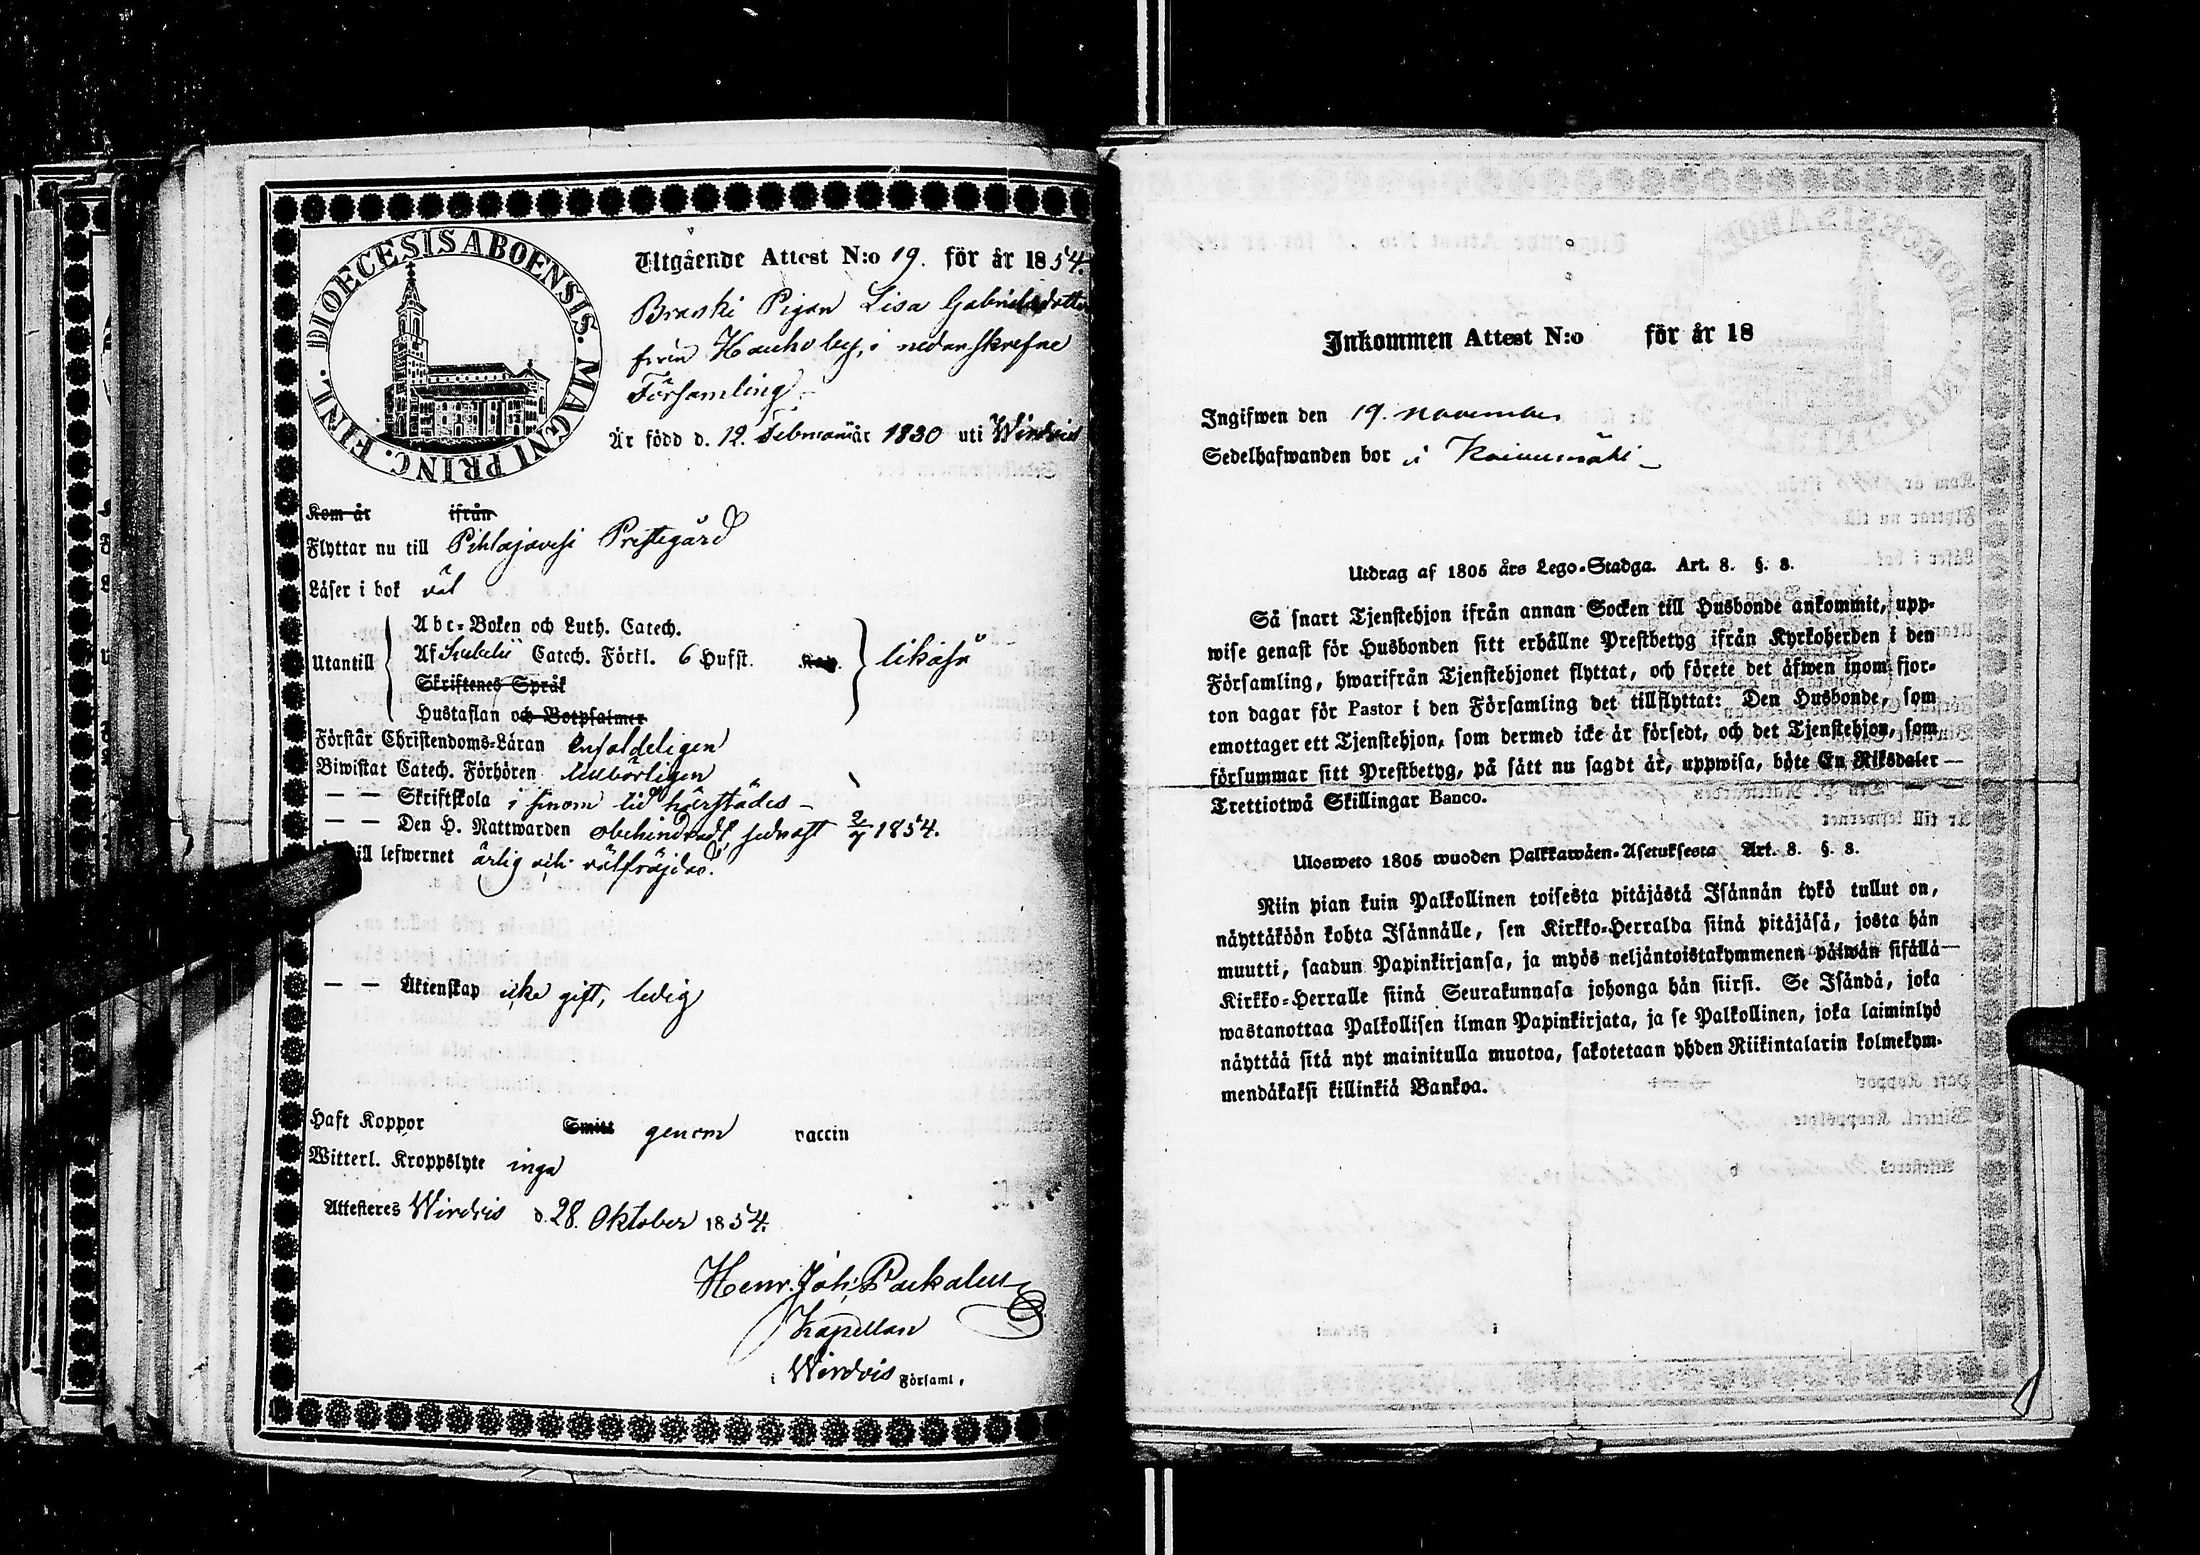 DIOECESIS ABOENSIS. MAGNI PRINC. FINL.
Utgående Attest N:o 19. för år 1854.
Braski Pigan Lisa Gabrielsdotter
från Hauhoby, i nedanskrefne
Församling
Är född d. 12. Februari är 1830 uti Wirdois
Kom år ifrån
Flyttar nu till Pihlajavesi Prestegård
Läser i bok väl
Utantill
Abc-Boken och Luth. Catech.
Af Svebelii Catech. Förkl. 6 Hufst. Kap. likaså
Skriftenes Språk
Hustaflan och Botpsalmer
Förstår Christendoms-Läran enfaldeligen
Biwistat Catech. Förhören tillbörligen
— — Skriftskola i sinom tid härstädes
— — Den H. Nattwarden obehindradt, sednast 2/7 1854.
till lefwernet ärlig och välfräjdad.
— — Äktenskap icke gift, ledig
Haft Koppor Smitt genom vaccin
Witterl. Kroppslyte inga
Attesteres Wirdois d. 28. Oktober 1854.
Henr. Joh.
Kapellan
i Wirdois Församl.
Inkommen Attest N:o för år 18
Ingifwen den 19. november
Sedelhafwanden bor i
Utdrag af 1805 års Lego-Stadga. Art. 8. §. 8.
Så snart Tjenstehjon ifrån annan Socken till Husbonde ankommit, upp-
wise genast för Husbonden sitt erhållne Prestbetyg ifrån Kyrkoherden i den
Församling, hwarifrån Tjenstehjonet flyttat, och förete det äfwen inom fjor-
ton dagar för Pastor i den Församling det tillflyttat: Den Husbonde, som
emottager ett Tjenstehjon, som dermed icke är försedt, och det Tjenstehjon, som
försummar sitt Prestbetyg, på sätt nu sagdt är, uppwisa, böte En Riksdaler
Trettiotwå Skillingar Banco.
Ulosweto 1805 wuoden Palkkawäen-Asetuksesta Art. 8. §. 8.
Niin pian kuin Palkollinen toisesta pitäjästä Isännän tykö tullut on,
näyttäköön kohta Isännälle, sen Kirkko-Herralda siinä pitäjäsä, josta hän
muutti, saadun Papinkirjansa, ja myös neljäntoistakymmenen päiwän sisällä
Kirkko-Herralle siinä Seurakunnasa johonga hän siirsi. Se Isändä, joka
wastanottaa Palkollisen ilman Papinkirjata, ja se Palkollinen, joka laiminlyö
näyttää sitä nyt mainitulla muotoa, sakotetaan yhden Riikintalarin kolmekym-
mendäkaksi killinkiä Bankoa.